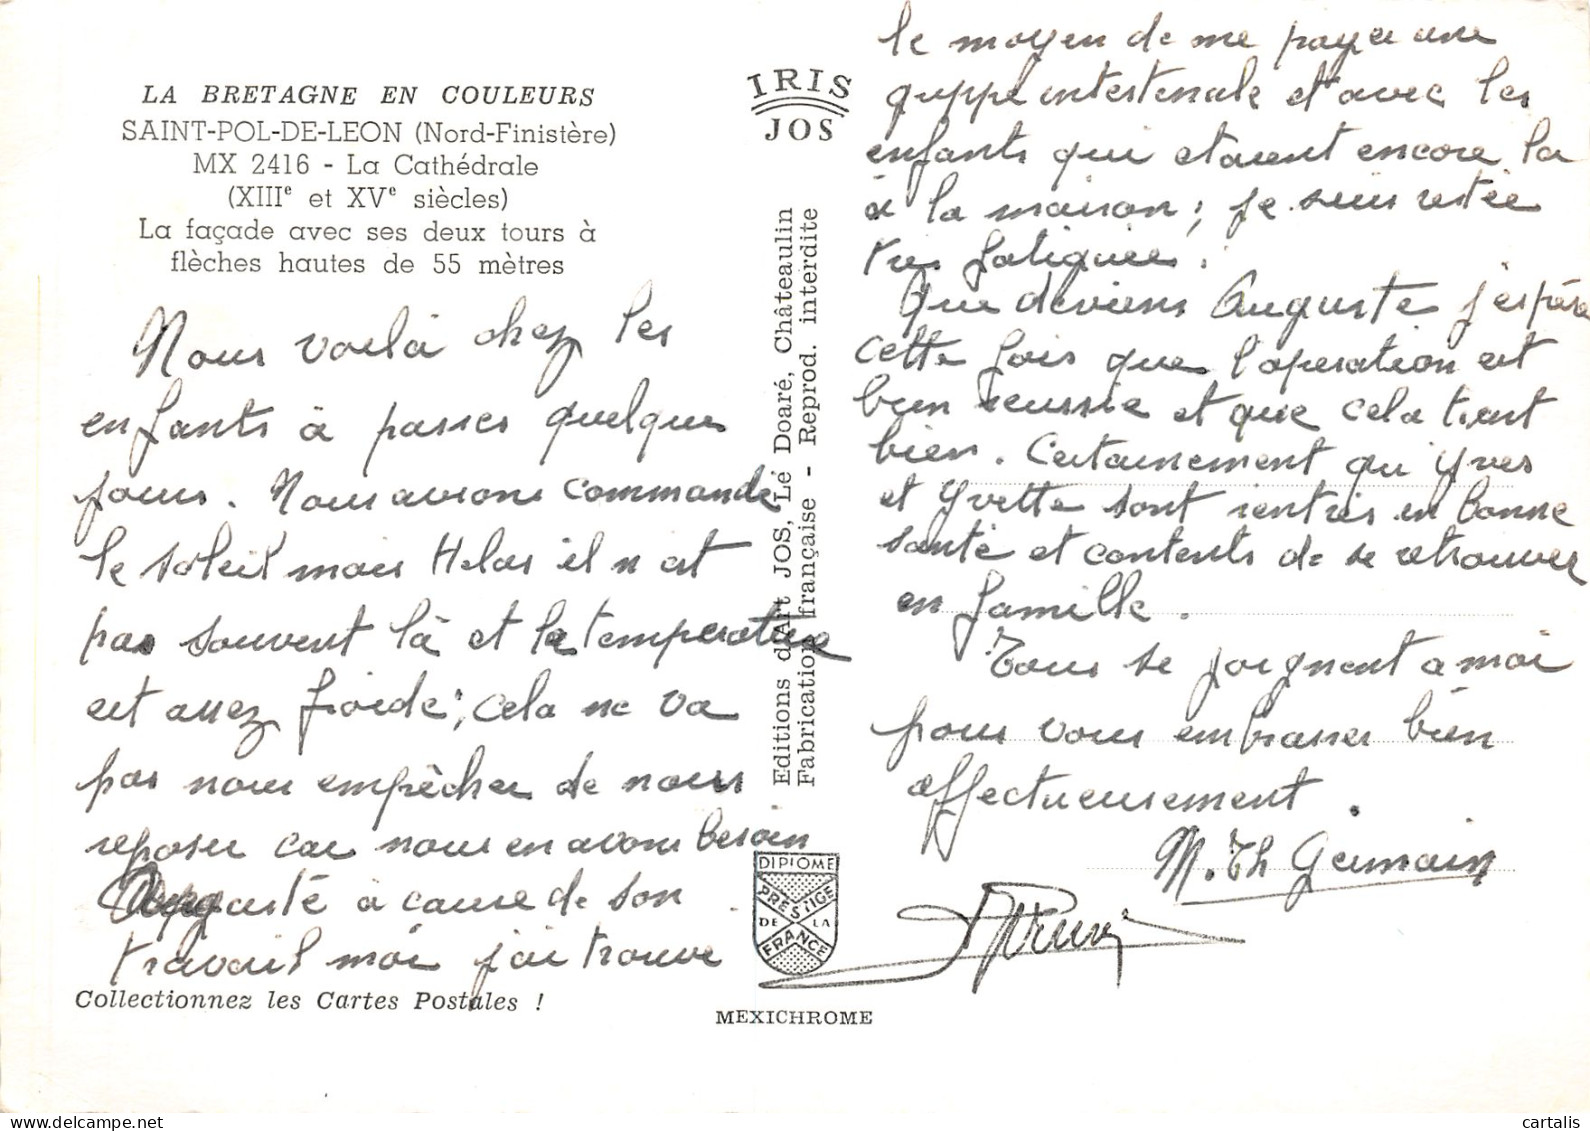 LA BRETAGNE EN COULEURS
SAINT-POL-DE-LEON (Nord-Finistère)
MX 2416 - La Cathédrale
(XIIIe et XVe siècles)
La façade avec ses deux tours à
flèches hautes de 55 mètres
Nous voilà chez les
enfants à passer quelques
jours. Nous avions commandé
le soleil mais Hélas il n'est
pas souvent là et la température
est assez froide ; cela ne va
pas nous empêcher de nous
reposer car nous en avons besoin
Auguste à cause de son
travail moi j'ai trouvé
Collectionnez les Cartes Postales !
IRIS
JOS
Editions d'Art JOS, Le Doaré, Châteaulin
Fabrication française - Reprod. interdite
DIPLOME
PRESTIGE
DE LA
FRANCE
MEXICHROME
le moyen de me payer une
grippe intestinale et avec les
enfants qui étaient encore là
à la maison ; je suis restée
très fatiguée.
Que deviens Auguste j'espère
cette fois que l'opération est
bien réussie et que cela tient
bien. Certainement qu Yves
et Yvette sont rentrés en bonne
santé et contents de se retrouver
en famille.
Tous se joignent a moi
pour vous embrasser bien
affectueusement.
M. Th Germain
cartalis